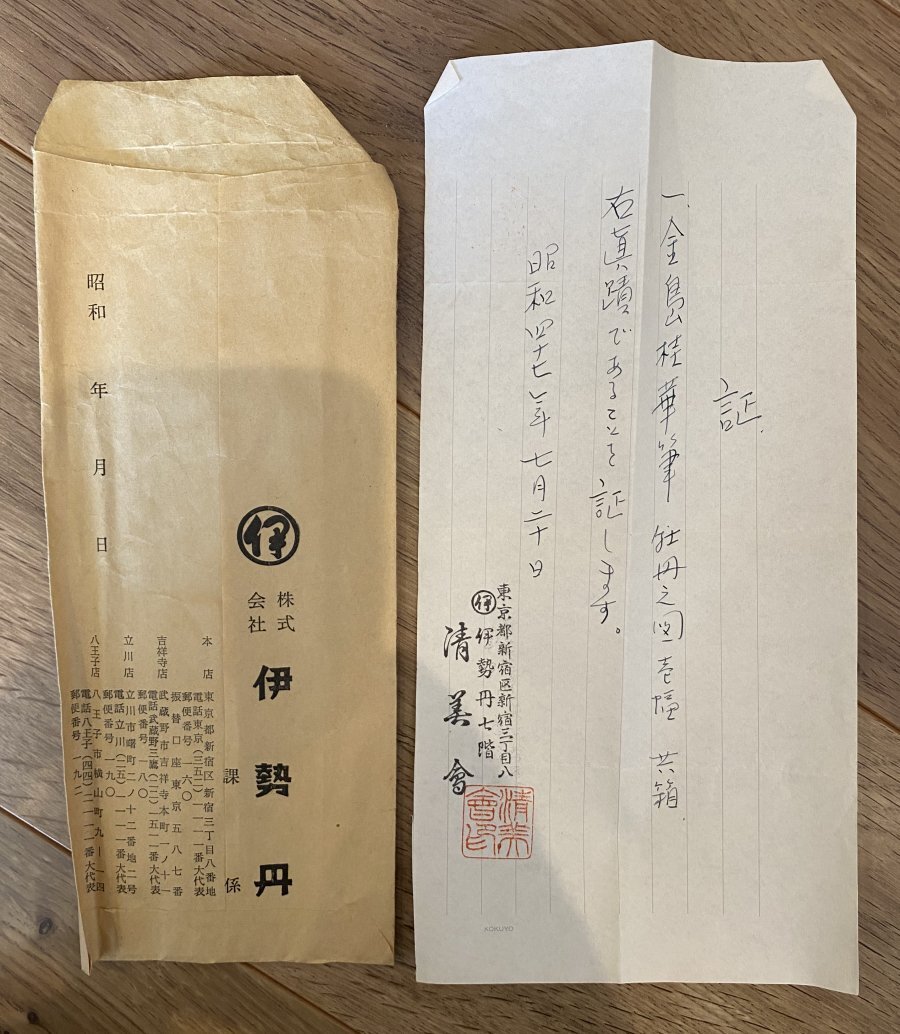 証.
一、金島桂華筆 牡丹之図壱幅 共箱
右眞蹟であることを証します。
昭和四十七年七月二十日
東京都新宿区新宿三丁目八
伊 伊勢丹七階
清美會
清美
會印
KOKUYO
伊
株式
会社
伊勢丹
課 係
本店 東京都新宿区新宿三丁目八番地
電話東京(三五二)一一一一番大代表
郵便番号 一六〇
振替口座東京五八七番
吉祥寺店 武蔵野市吉祥寺本町一ノ十一
電話武蔵野三鷹 番大代表
郵便番号 一八〇
立川店 立川市曙町二ノ十二番地二号
電話立川(二五)一一一一番大代表
郵便番号 一九〇
八王子店 八王子市横山町九ー一四
電話八王子(四四)一一一一番大代表
郵便番号 一九二
昭和 年 月 日